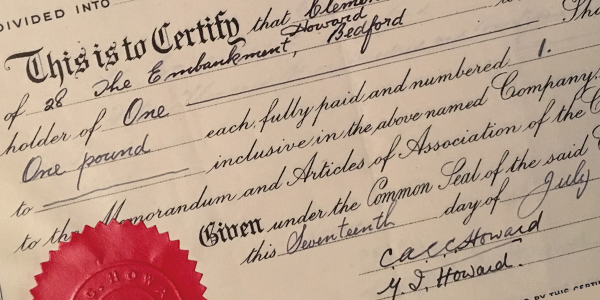 DIVIDED INTO
This is to Certify that Clemen
Howard
of 28 The Embankment, Bedford
holder of One Sha
One pound each, fully paid and numbered 1.
to inclusive in the above named Company,
to the Memorandum and Articles of Association of the C
Given under the Common Seal of the said C
this Seventeenth day of July
C.A.C.C. Howard
Y. I. Howard.
BY THIS CERTIF
HOWA